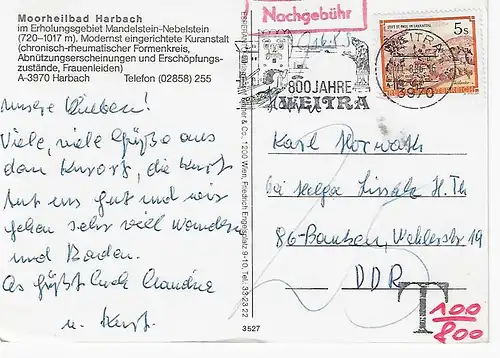 Moorheilbad Harbach
im Erholungsgebiet Mandelstein-Nebelstein
(720–1017 m). Modernst eingerichtete Kuranstalt
(chronisch-rheumatischer Formenkreis,
Abnützungserscheinungen und Erschöpfungs-
zustände, Frauenleiden)
A-3970 Harbach Telefon (02858) 255
Unsere Lieben!
Viele, viele Grüße aus
dem Kurort, die Kur
tut uns gut und wir
gehen sehr viel wandern
und Baden.
Es grüßt Euch
u. Kurt.
& Co., 1200 Wien, Friedrich Engelsplatz 9-10, Tel. 33 23 22
3527
Nachgebühr
800 JAHRE
WEITRA
WEITRA
3970
5s
Karl Horvath
bei Helga
86-Bautzen, 19
DDR
T
100
800